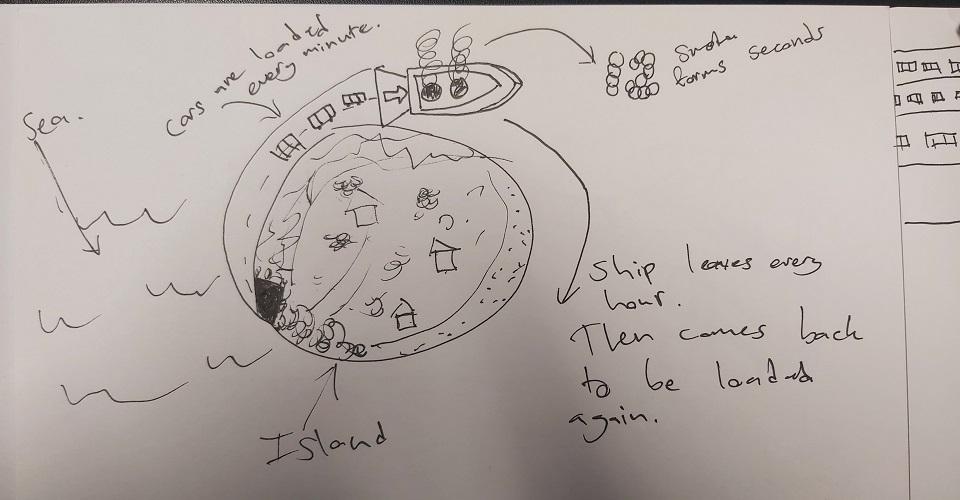 Cars are loaded
every minute.
Sea.
Smoke
forms seconds
Ship leaves every
hour.
Then comes back
to be loaded
again.
Island